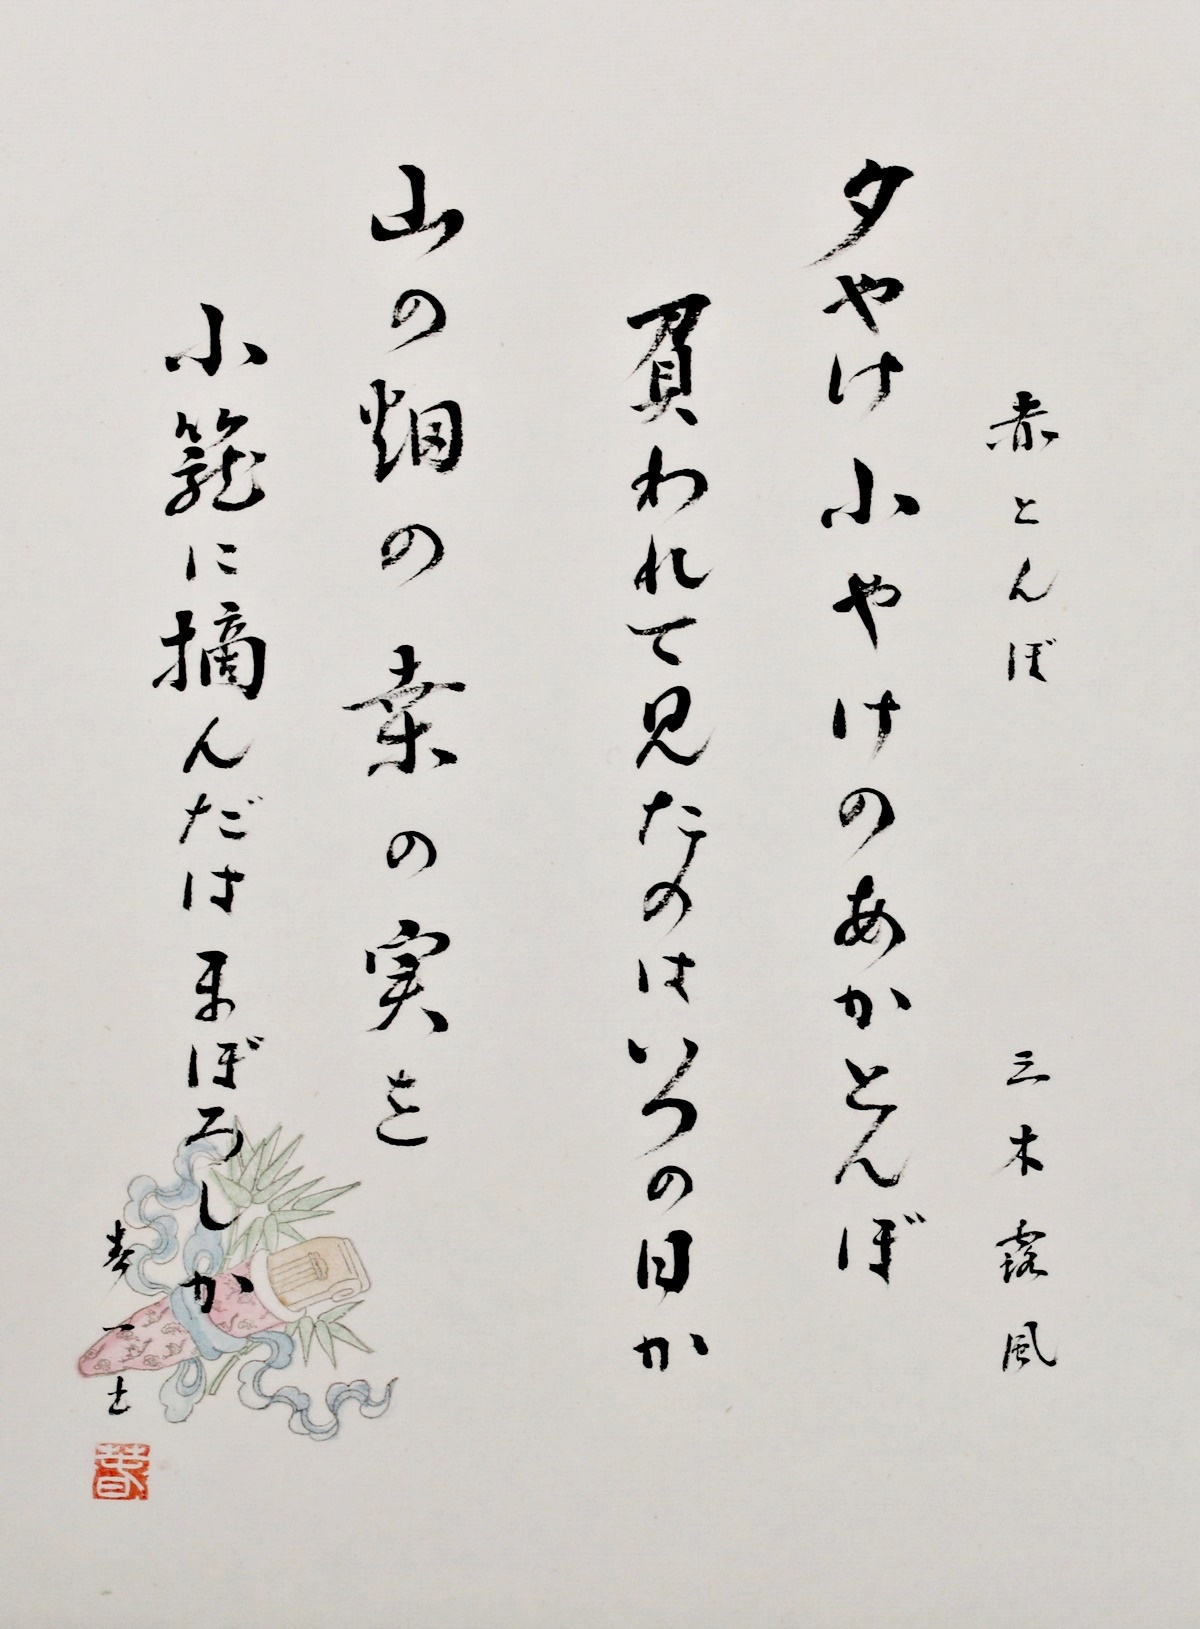 赤とんぼ　三木露風
夕やけ小やけのあかとんぼ
負われて見たのはいつの日か
山の畑の桑の実を
小籠に摘んだはまぼろしか
春